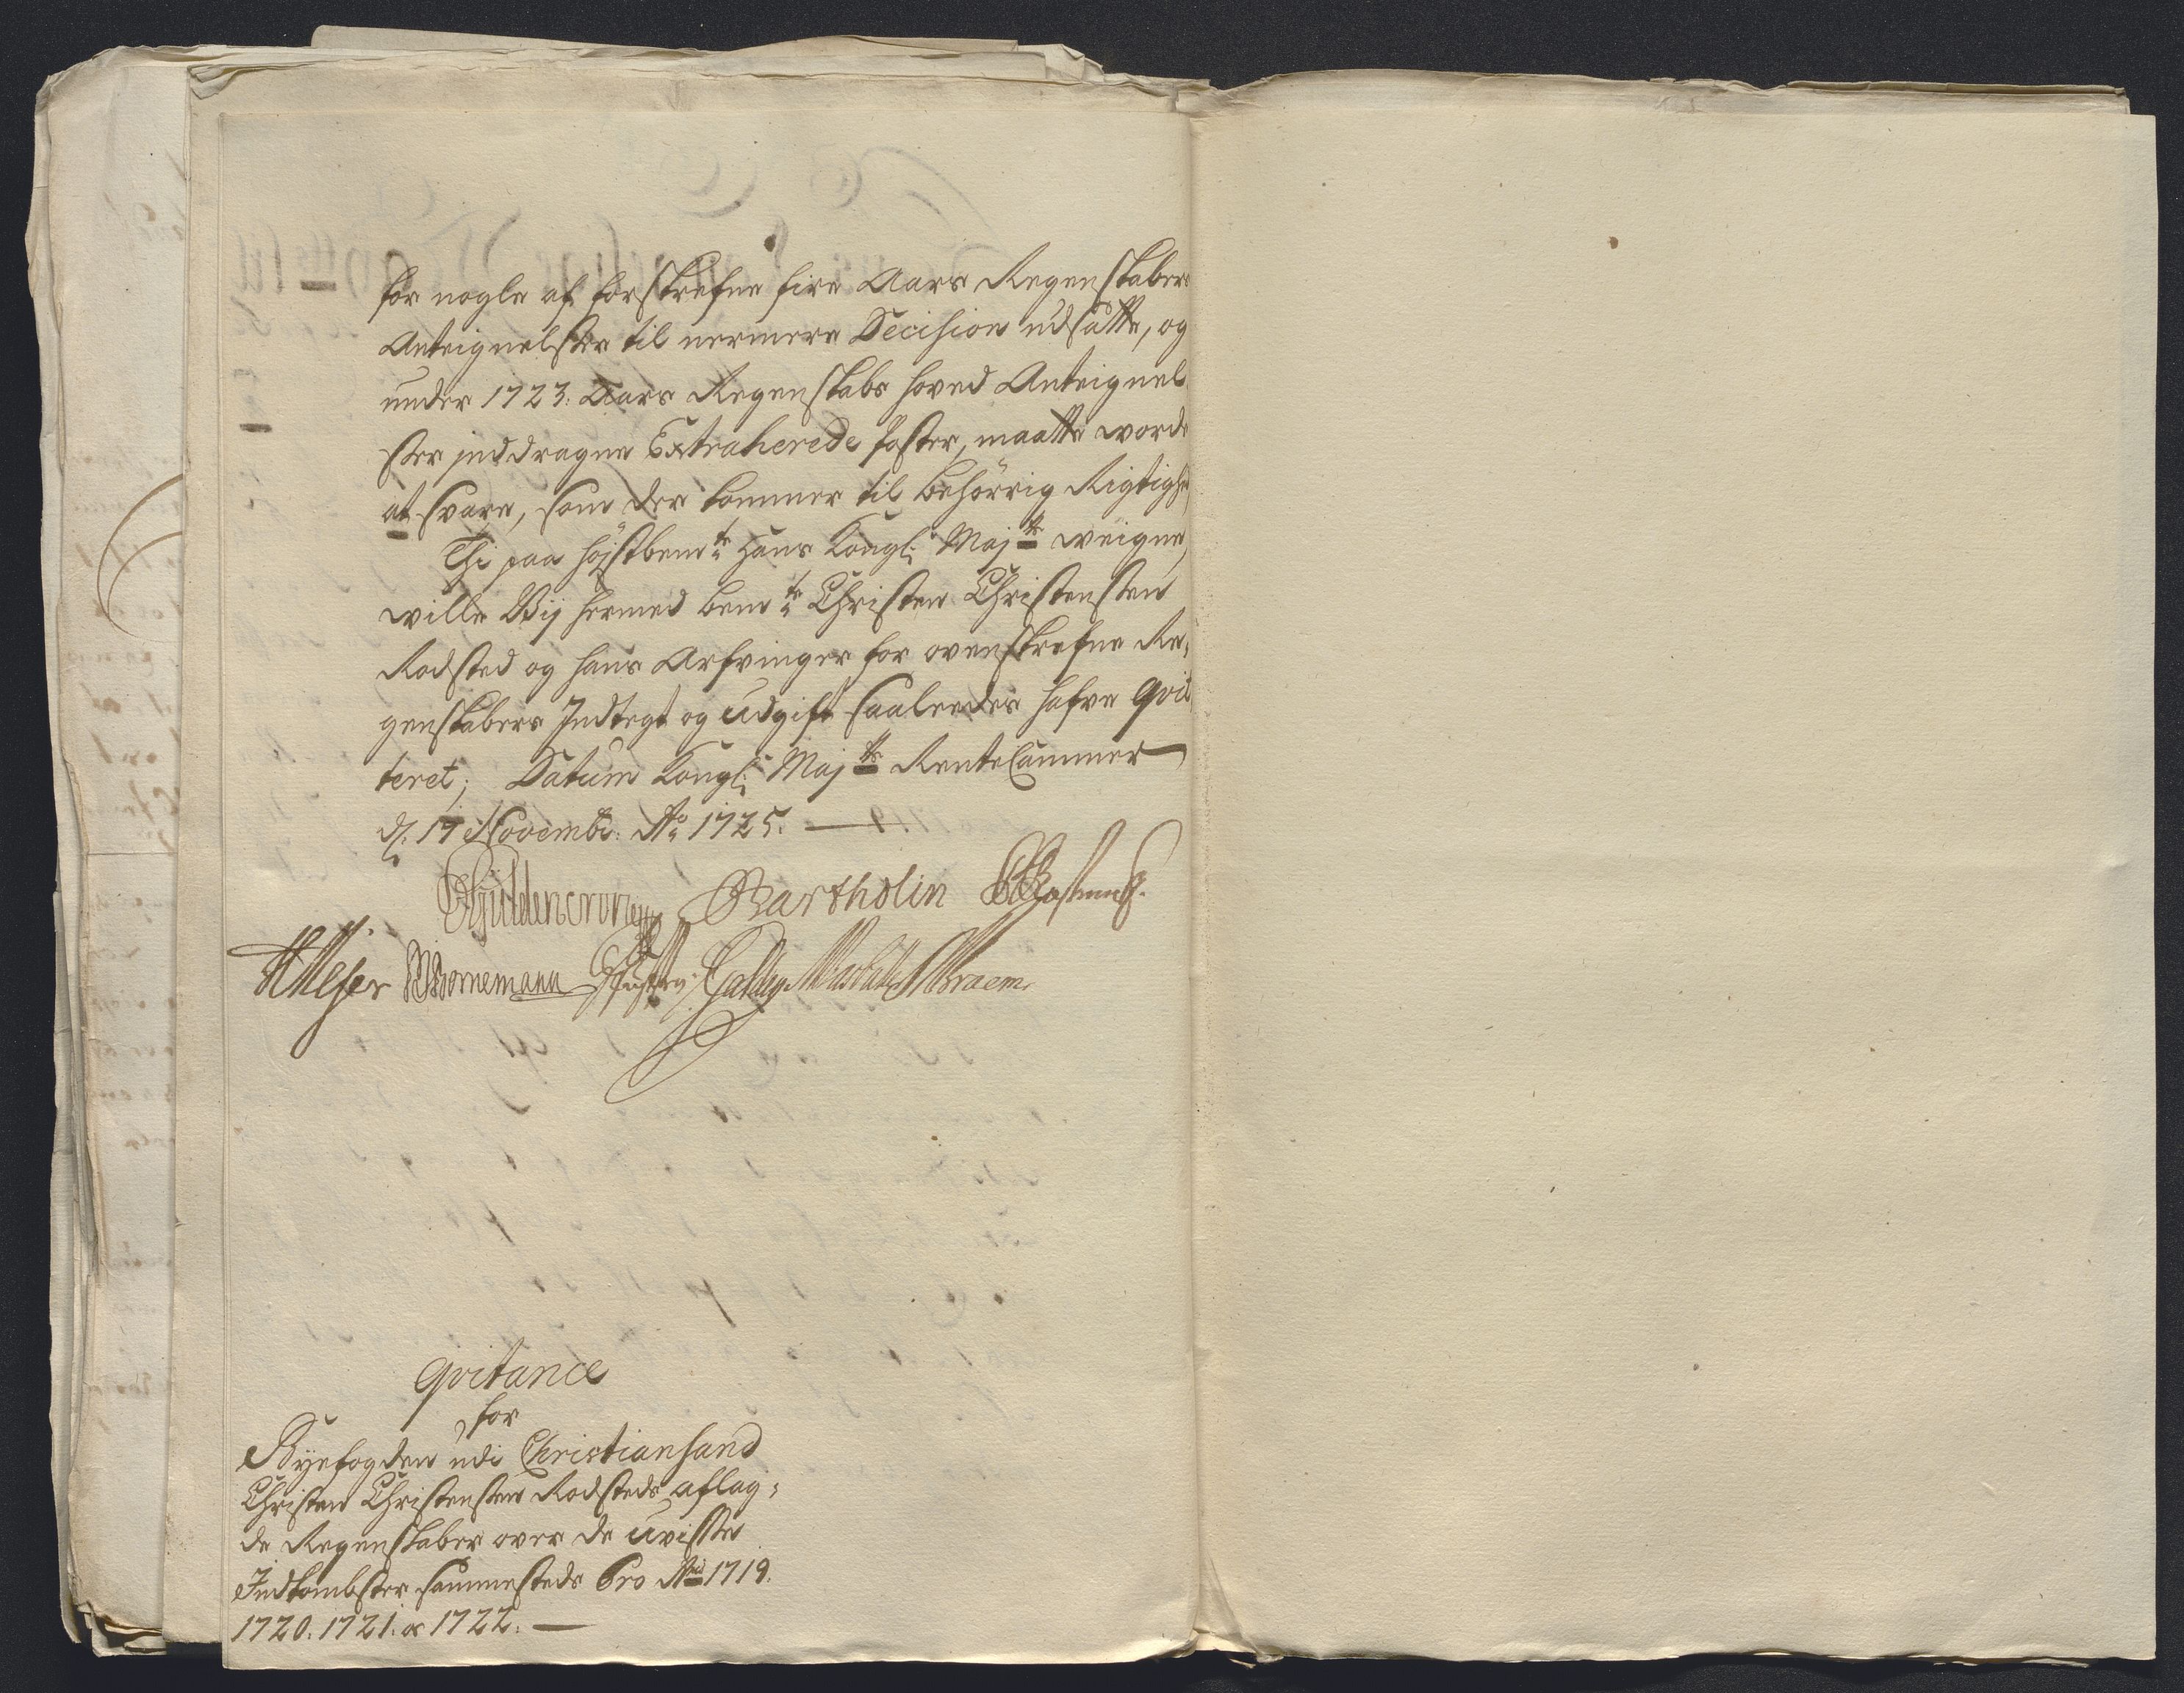 for nogle af forskrefne fire Aars Regenskabers
Anteignelser til nermere Decision udsatte, og
under 1723. Aars Regenskabs hoved Anteignel
ser inddragne Extraherede poster, maatte worde
at svare, som der kommer til behörrig Rigtighe
Thi paa höistbemte Hans Kongl: Majts weigne,
wille Wij hermed bemte Christen Christensen
Rodsted og hans Arfvinger for ovenskrefne Re,
genskabers Indtegt og Udgift saaleedes hafve qvit
teret; Datum Kongl: Majts RenteCammer
d. 17 Novembr: Ao 1725.
Güldencrone Bartholin
HMeser Bornemann Braem.
Qvitance
for
Byefogden udi Christiansand
Christen Christensen Rodsteds aflag,
de Regenskaber over de Uvisse
Indkombster sammesteds Pro Ao 1719.
1720. 1721. oc 1722.